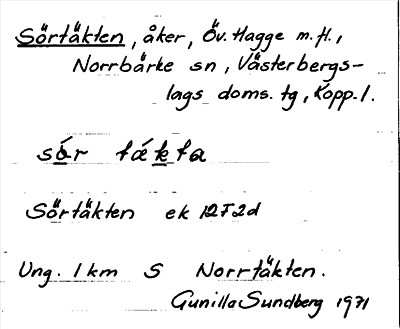 Sörtäkten, åker, Öv. Hagge m. fl.,
Norrbärke sn, Västerbergs-
lags doms. tg, Kopp. l.
sǿr tǽkta
Sörtäkten ek 12F2d
Ung. 1 km S Norrtäkten.
Gunilla Sundberg 1971